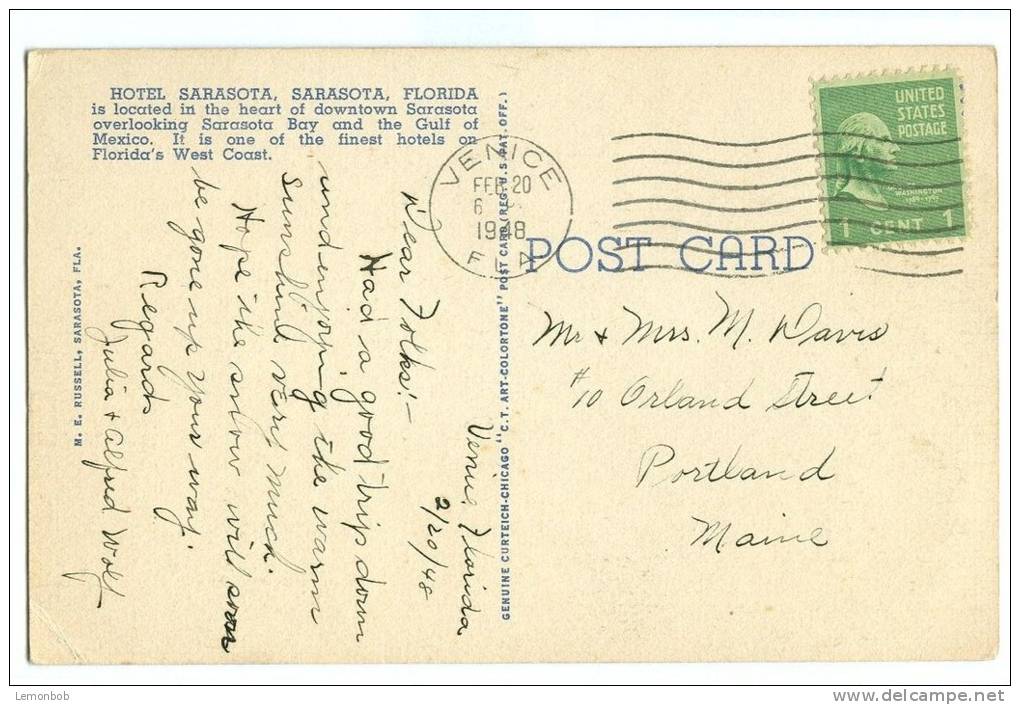 HOTEL SARASOTA, SARASOTA, FLORIDA
is located in the heart of downtown Sarasota
overlooking Sarasota Bay and the Gulf of
Mexico. It is one of the finest hotels on
Florida's West Coast.
M. E. RUSSELL, SARASOTA, FLA.
Venice, Florida
2/20/48
Dear Folks:-
Had a good trip down
and enjoying the warm
sunshine very much.
Hope the snow will soon
be gone up your way.
Regards
Julia & Alfred Wolf
GENUINE CURTEICH-CHICAGO "C.T. ART-COLORTONE" POST CARD (REG. U.S. PAT. OFF.)
VENICE
FEB 20
6
1948
FLA
UNITED
STATES
POSTAGE
WASHINGTON
1 CENT 1
POST CARD
Mr & Mrs. M. Davis
#10 Orland Street
Portland
Maine
Lemonbob
www.delcampe.net